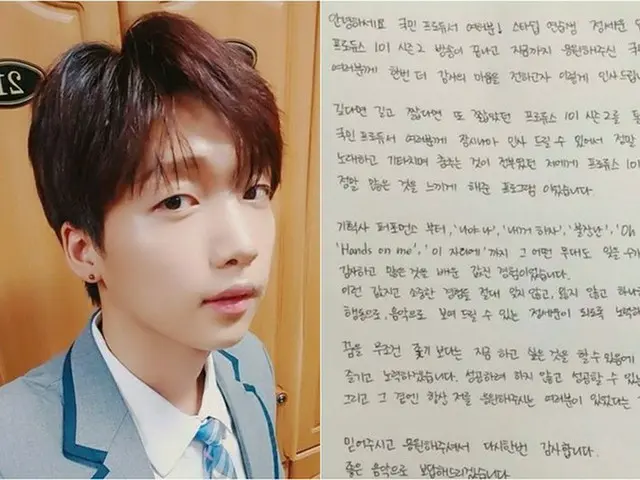 21
안녕하세요 국민 프로듀서 여러분! 스타쉽 연습생 정세운
프로듀스 101 시즌2 방송이 끝나고 지금까지 응원해주신
여러분께 한번 더 감사의 마음을 전하고자 이렇게 인사드립
길다면 길고 짧다면 또 짧았던 프로듀스 101 시즌2를
국민 프로듀서 여러분께 잠시나마 인사 드릴 수 있어서 정말
노래하고 기타치며 춤추는 것이 전부였던 저에게 프로듀스 101
정말 많은 것을 느끼게 해준 프로그램 이었습니다.
기획사 퍼포먼스 부터, '나야 나', '내꺼 하자', '불장난', 'Oh
'Hands on me', '이 자리에' 까지 그 어떤 무대도 잊을 수
감사하고 많은 것을 배운 값진 경험이었습니다.
이런 값지고 소중한 경험을 절대 잊지않고, 잃지 않고 하나
행동으로, 음악으로 보여 드릴 수 있는 정세운이 되도록 노력
꿈을 무조건 쫓기 보다는 지금 하고 싶은 것을 할 수 있음에
즐기고 노력하겠습니다. 성공하려 하지 않고 성공할 수 있는
그리고 그 곁엔 항상 저를 응원해주시는 여러분이 있었다는
믿어주시고 응원해주셔서 다시한번 감사합니다.
좋은 음악으로 보답해드리겠습니다